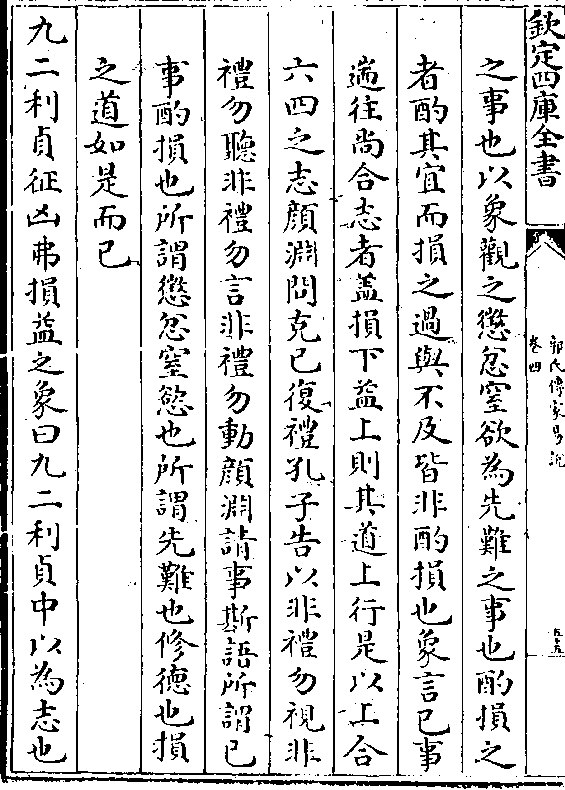 欽定四庫全書
郭氏傳家易說
卷四
之事也以象觀之懲忿窒欲為先難之事也酌損之
者酌其宜而損之過與不及皆非酌損也象言已事
遄往尚合志者蓋損下益上則其道上行是以上合
六四之志顏淵問克己復禮孔子告以非禮勿視非
禮勿聽非禮勿言非禮勿動顏淵請事斯語所謂已
事酌損也所謂懲忿窒慾也所謂先難也修德也損
之道如是而已
九二利貞征凶弗損益之象曰九二利貞中以為志也